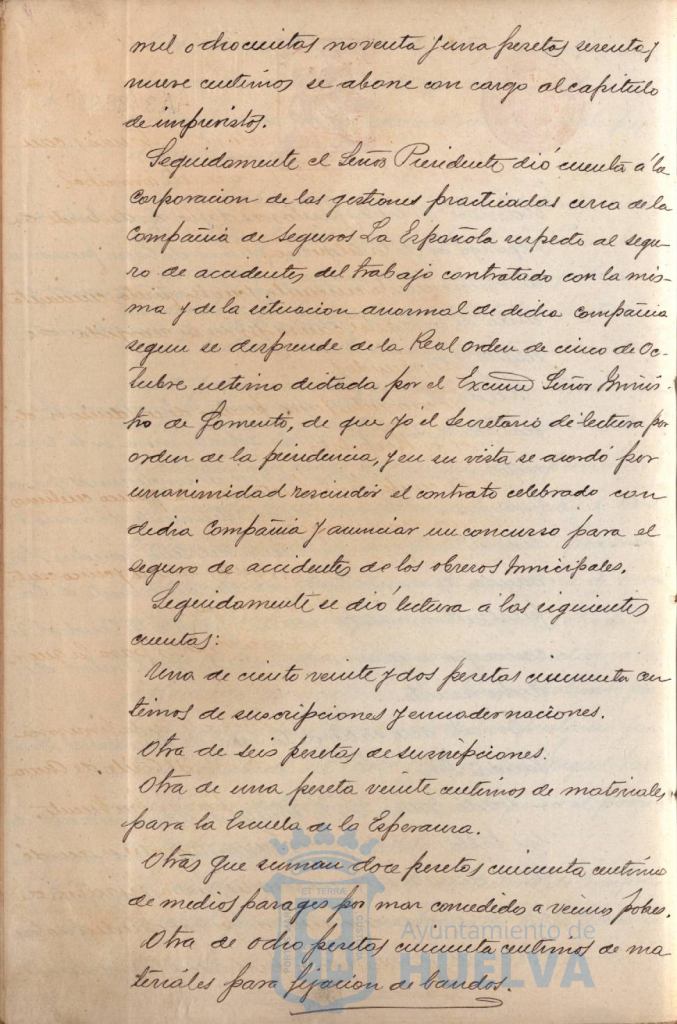 mil ochocientas noventa y una pesetas sesenta y
nueve centimos se abone con cargo al capitulo
de imprevistos.
Seguidamente el Señor Presidente dió cuenta á la
Corporacion de las gestiones practicadas cerca de la
Compañia de Seguros La Española respecto al segu-
ro de accidentes del trabajo contratado con la mis-
ma y de la situacion anormal de dicha compañia
segun se desprende de la Real orden de cinco de Oc-
tubre ultimo dictada por el Excmo Señor Minis-
tro de Fomento, de que yó el Secretario dí lectura por
orden de la presidencia, y en su vista se acordó por
unanimidad rescindir el contrato celebrado con
dicha Compañia y anunciar un concurso para el
seguro de accidentes de los obreros Municipales.
Seguidamente se dió lectura á las siguientes
cuentas:
Una de ciento veinte y dos pesetas cincuenta cen
timos de suscripciones y encuadernaciones.
Otra de seis pesetas de suscripciones.
Otra de una peseta veinte centimos de materiales
para la Escuela de la Esperanza.
Otras que suman doce pesetas cincuenta centimos
de medios pasages por mar concedidos a vecinos pobres.
Otra de ocho pesetas cincuenta centimos de ma
teriales para fijacion de bandos.
Ayuntamiento de
HUELVA